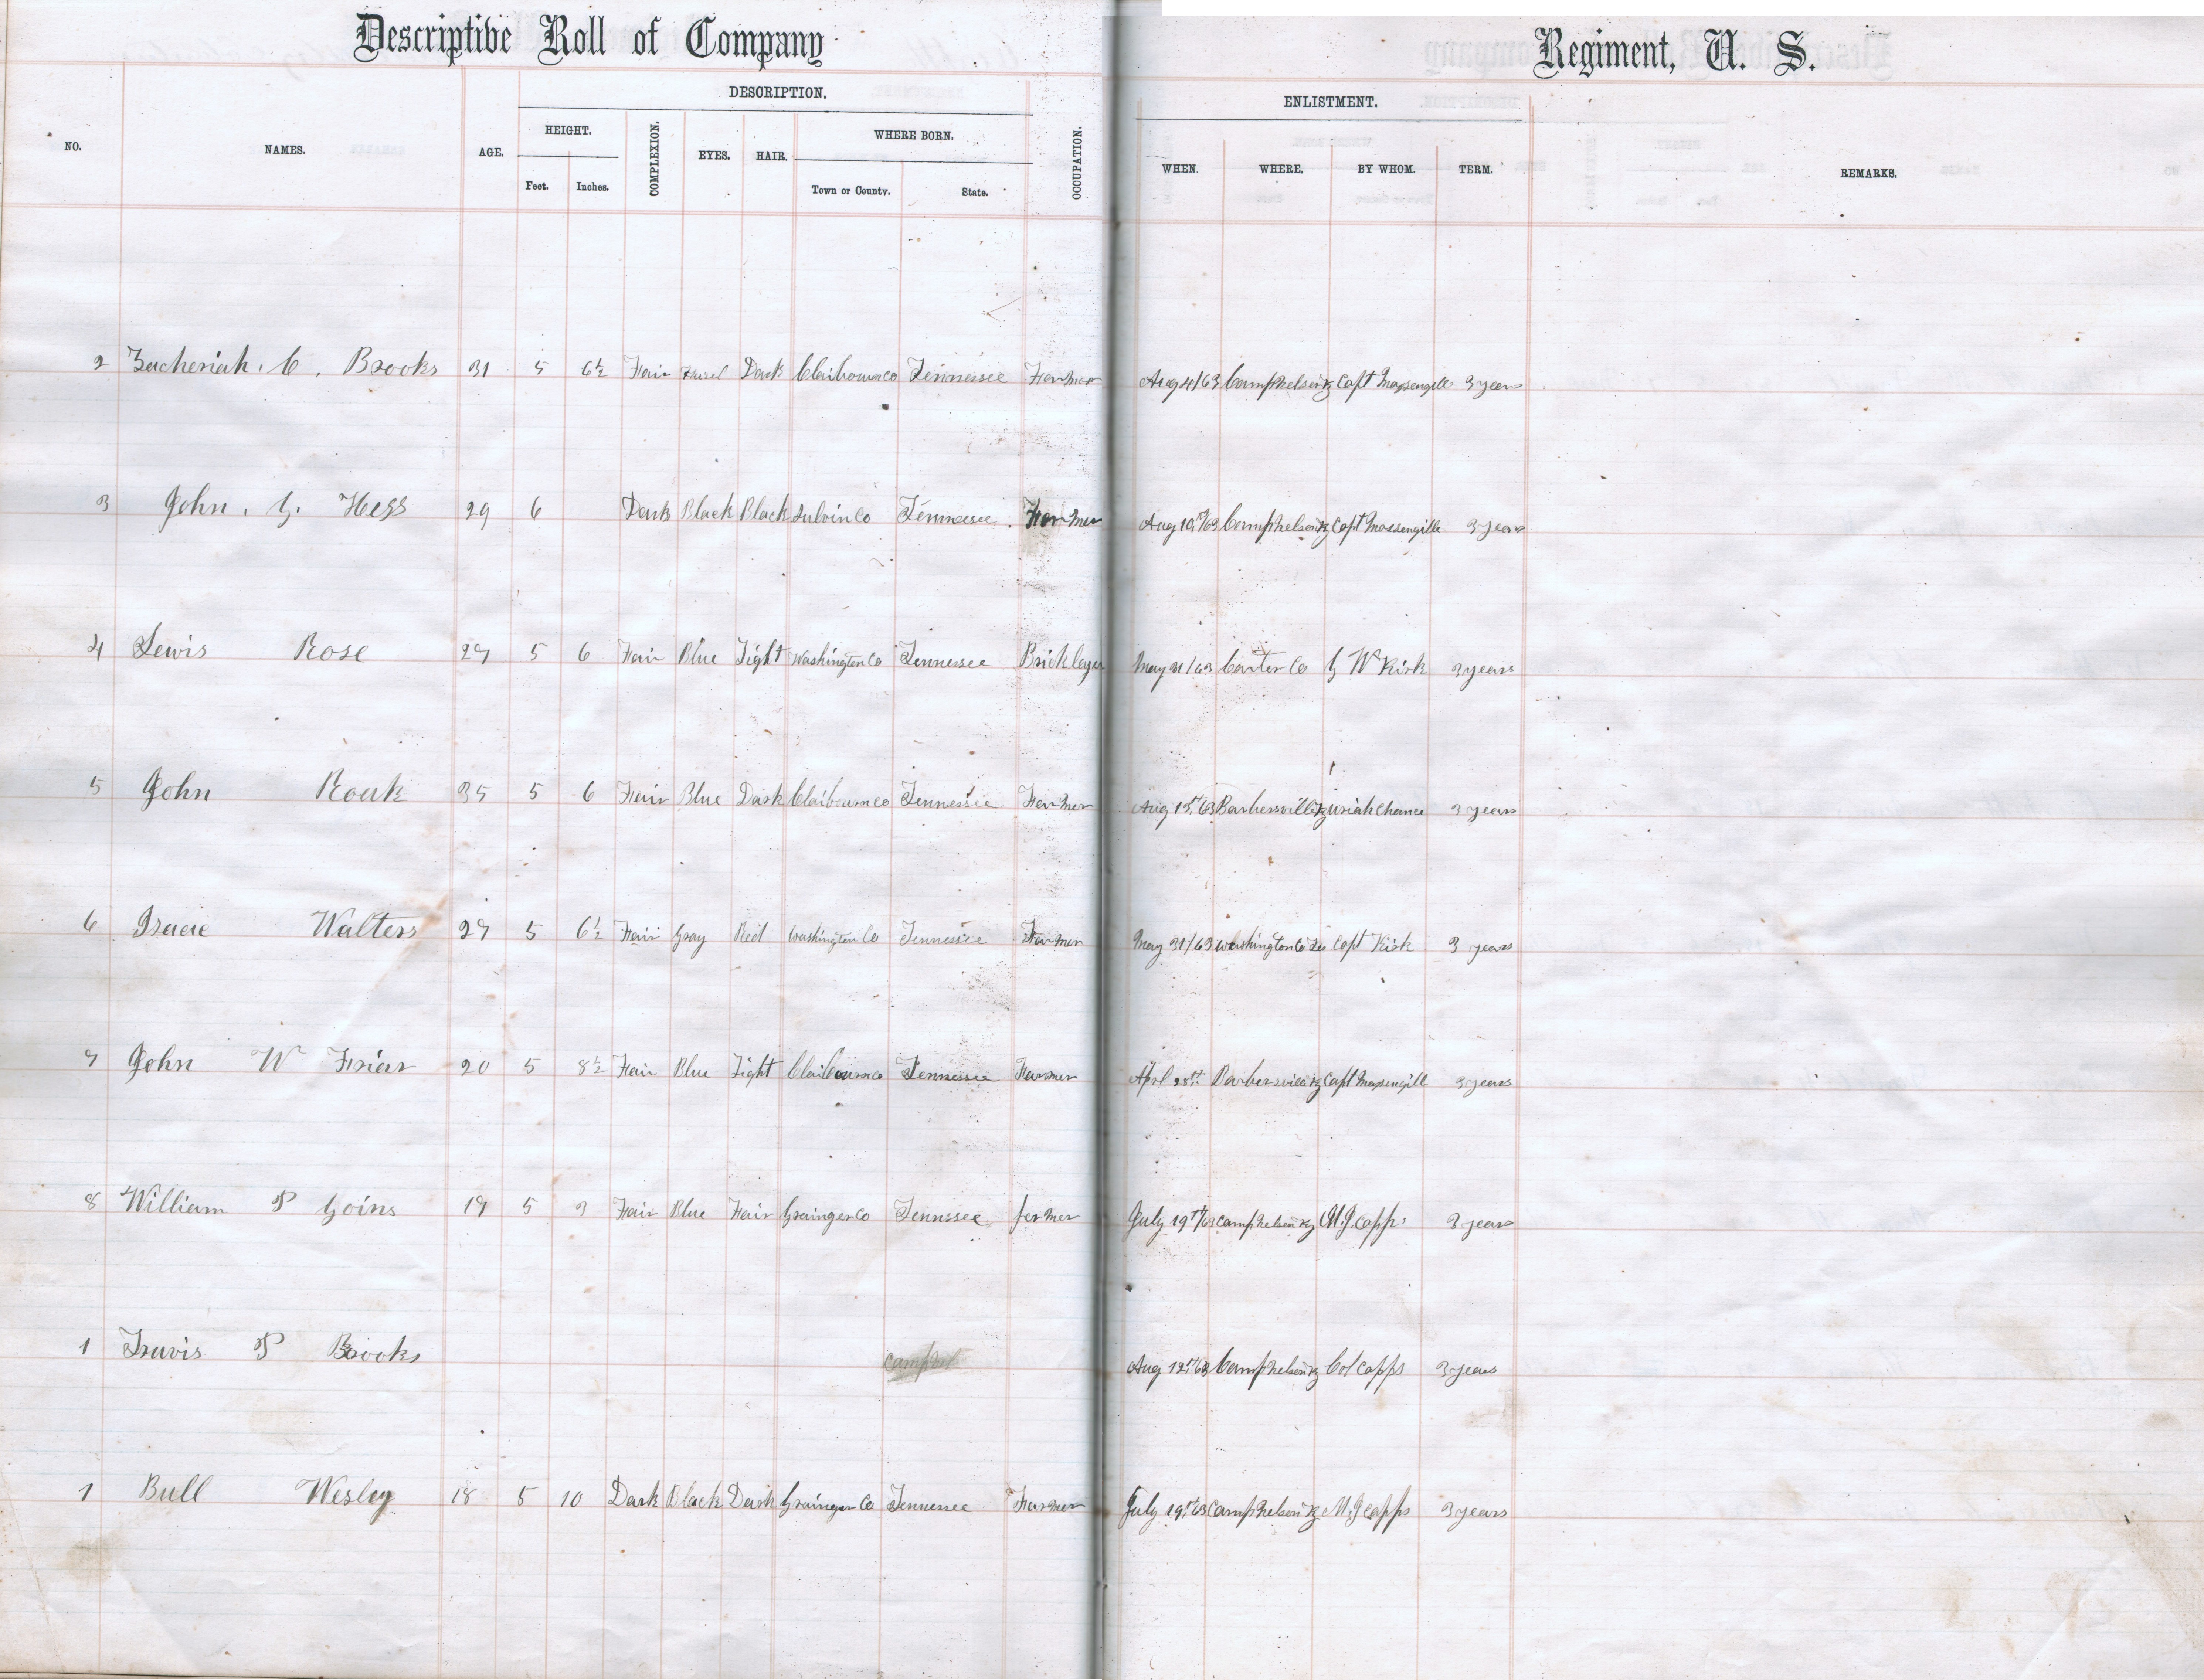 Descriptive Roll of Company Regiment, U. S.
DESCRIPTION. ENLISTMENT.
NO. NAMES. AGE. HEIGHT. COMPLEXION. EYES. HAIR. WHERE BORN. OCCUPATION. WHEN. WHERE. BY WHOM. TERM. REMARKS.
Feet. Inches. Town or County. State.
2 Zacheriah. C. Brooks 31 5 6½ Fair Hazel Dark Claibourn co Tennessee Farmer Aug 4/63 Camp Nelson Ky Capt Massengill 3 years
3 John. G. Hess 29 6 Dark Black Black Sulvin Co Tennessee. Farmer Aug 10th/63 Camp Nelson Ky Capt Massengille 3 years
4 Lewis Rose 27 5 6 Fair Blue Light Washington Co Tennessee Bricklayer May 31/63 Carter Co G W Kirk 3 years
5 John Roark 35 5 6 Fair Blue Dark Claibourn co Tennessee Farmer Aug 15th 63 Barbersville Ky Uriah Chance 3 years
6 Isacc Walters 27 5 6½ Fair Gray Red Washington Co Tennessee Farmer May 31/63 Washington Co Capt Kirk 3 years
7 John W Friar 20 5 8½ Fair Blue Light Claibourn co Tennessee Farmer Aprl 25th Barbersville Ky Capt Massengill 3 years
8 William P Goins 17 5 3 Fair Blue Fair Grainger Co Tennssee farmer July 19th/63 Camp Nelson Ky M. J. Capps 3 years
1 Travis P Brooks campnel Aug 12th/63 Camp Nelson Ky Col Capps 3 years
1 Bull Wesley 18 5 10 Dark Black Dark Grainger Co Tennessee Farmer July 19th 63 Camp Nelson Ky M. J Capps 3 years